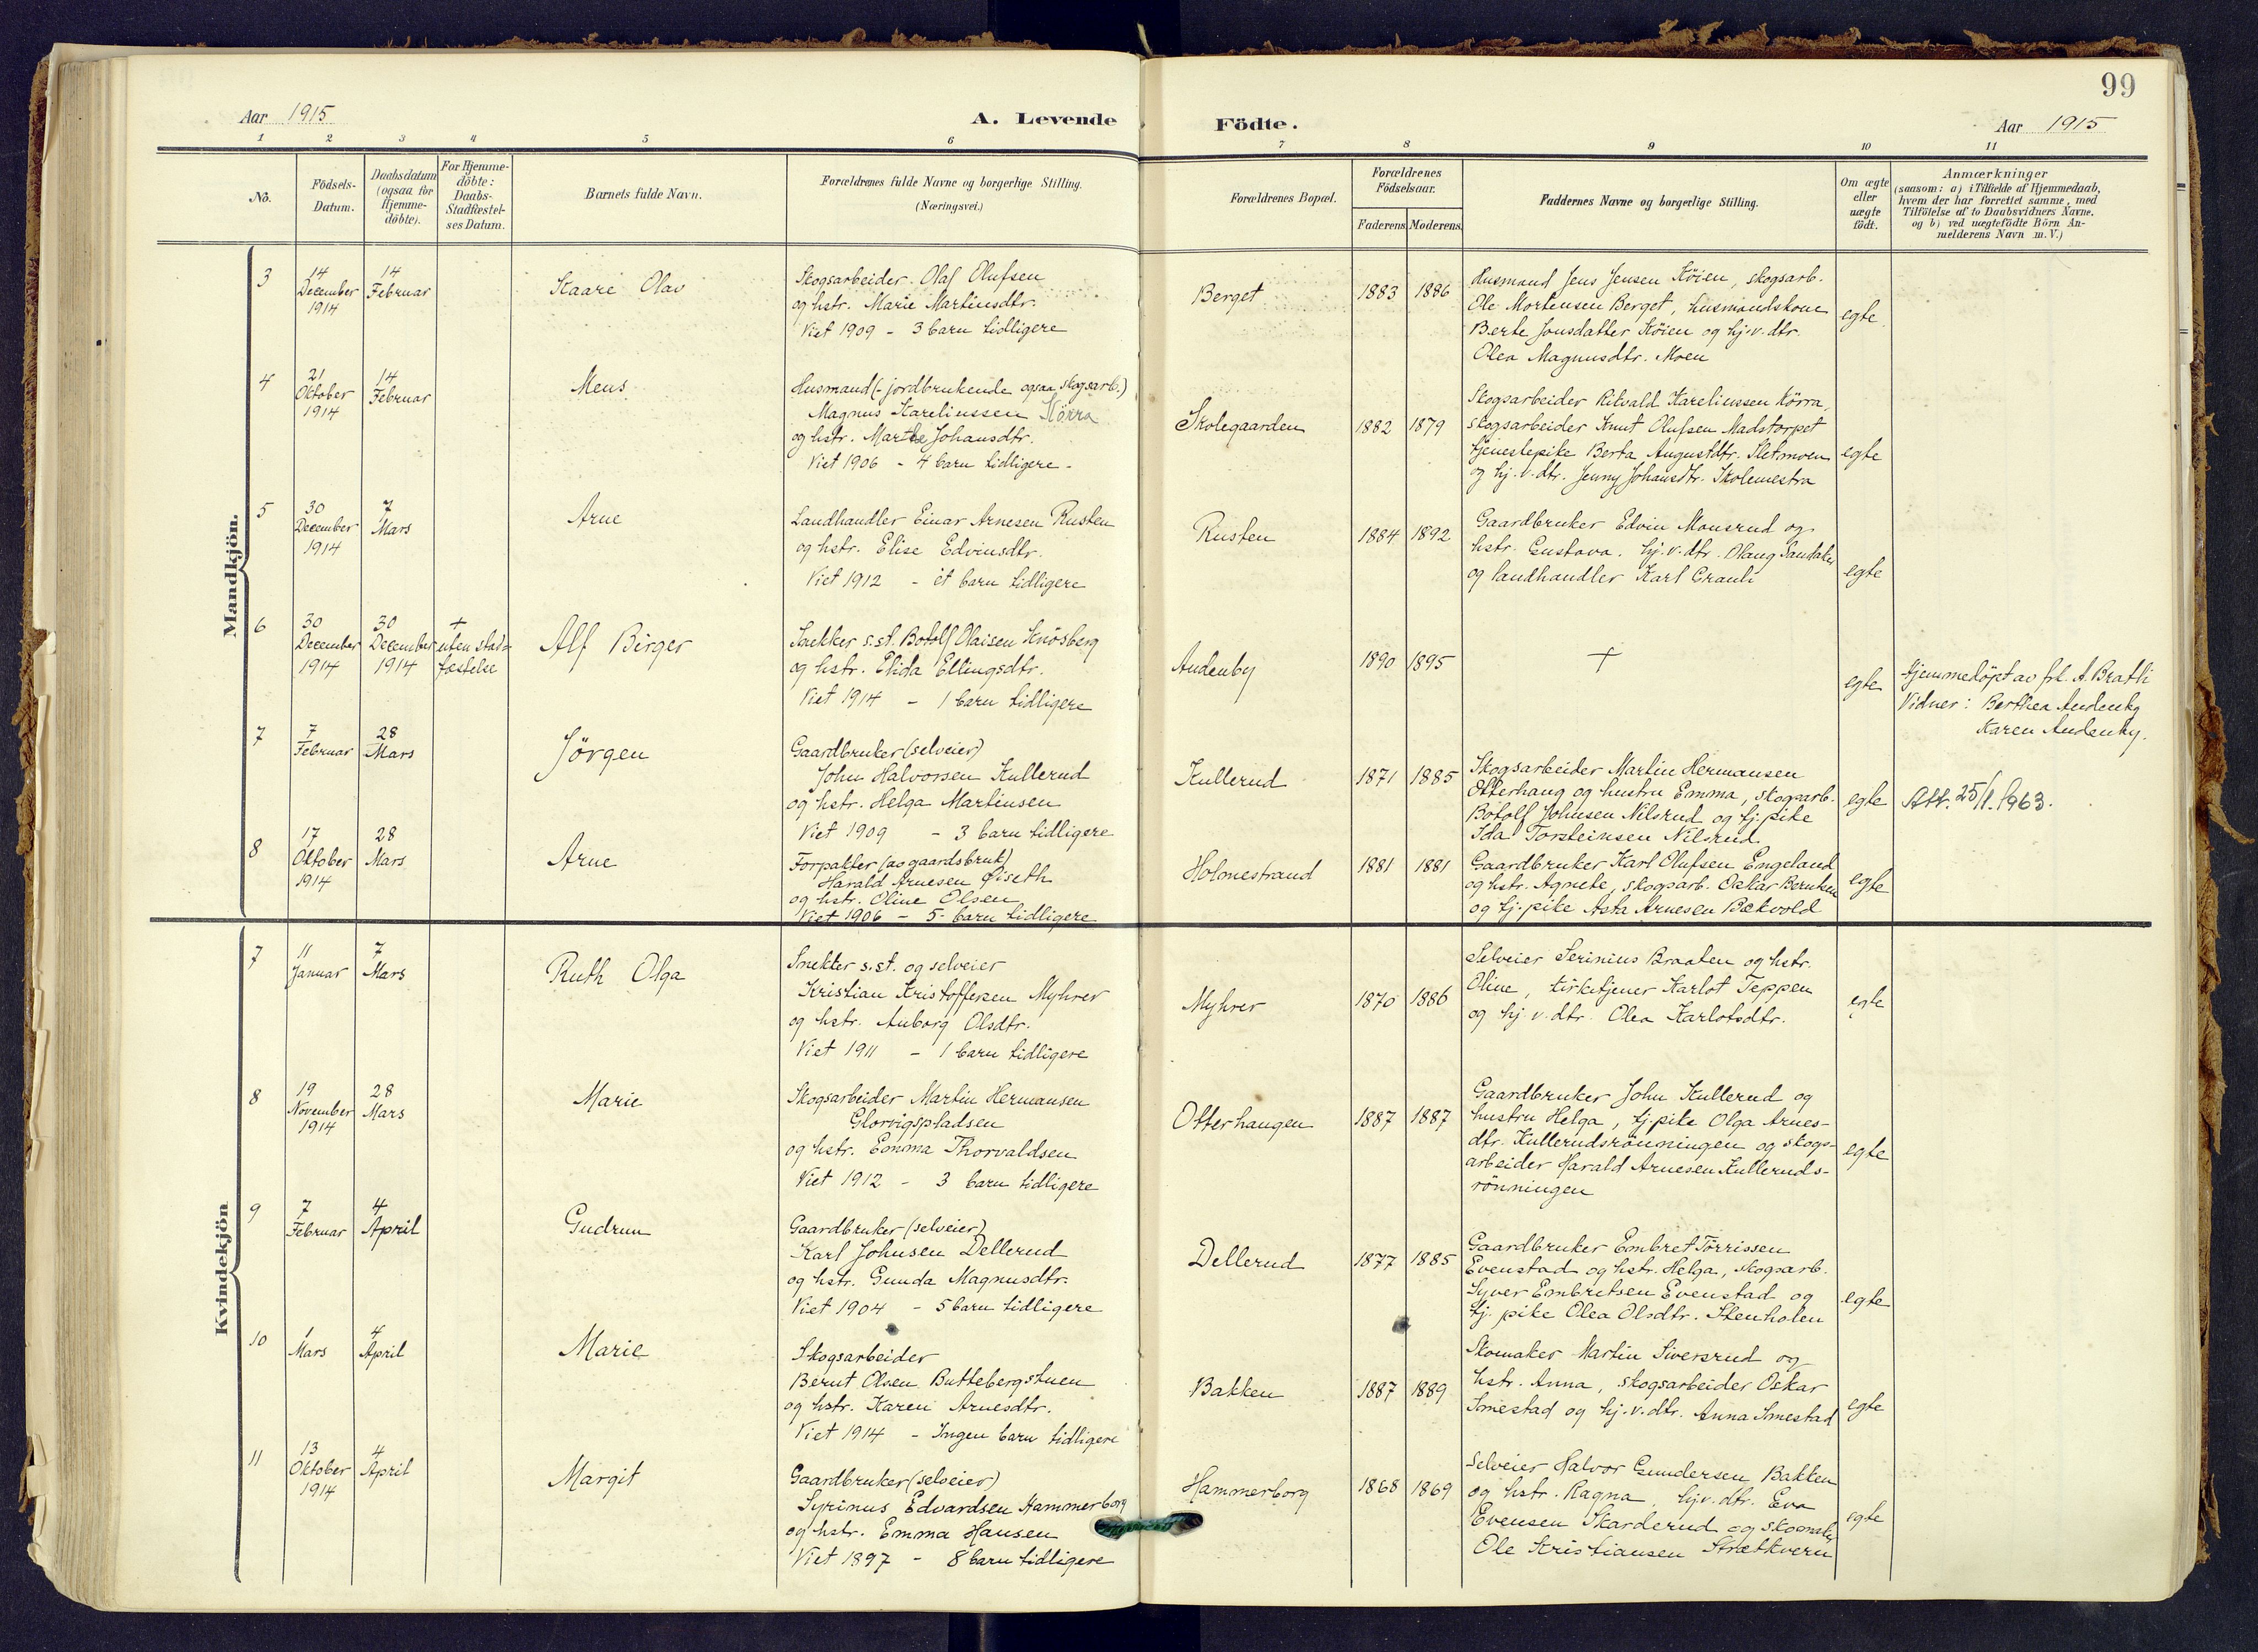 99
Aar 1915
A. Levende
Födte.
Aar 1915
1 2 3 4 5 6 7 8 9 10 11
No.
Födsels-
Datum.
Daabsdatum
(ogsaa for
Hjemme-
döbte).
For Hjemme-
döbte:
Daabs-
Stadfæstel-
ses Datum.
Barnets fulde Navn.
Forældrenes fulde Navne og borgerlige Stilling.
(Næringsvei.)
Forældrenes Bopæl.
Forældrenes
Födselsaar.
Faderens. Moderens.
Faddernes Navne og borgerlige Stilling.
Om ægte
eller
uægte
födt.
Anmærkninger
(saasom: a) i Tilfælde af Hjemmedaab,
hvem der har forrettet samme, med
Tilföielse af to Daabsvidners Navne.
og b) ved uægtefödte Börn An-
melderens Navn m. V.)
Mandkjön.
3
14
December
1914
14
Februar
Kaare Olav
Skogsarbeider Olaf Olufsen
og hstr. Marie Martinsdtr.
Viet 1909 - 3 barn tidligere
Berget
1883
1886
Husmand Jens Jensen Köien, skogsarb.
Ole Mortensen Berget, husmandskone
Berte Jonsdatter Köien og hj.v.dtr.
Olea Magnusdtr. Moen
egte
4
21
Oktober
1914
14
Februar
Mens
Husmand (- jordbrukende ogsaa skogsarb.)
Magnus Kareliussen Körra
og hstr. Marthe Johansdtr.
Viet 1906 - 4 barn tidligere -
Skolegaarden
1882
1879
Skogsarbeider Rikvald Kareliussen Körra,
skogsarbeider Knut Olufsen Madstorpet
tjenestepike Berta Augustdtr. Sletmoen
og hj.v.dtr. Jenny Johansdtr. Skolemestra
egte
5
30
December
1914
7
Mars
Arne
Landhandler Einar Arnesen Rusten
og hstr. Elise Edvinsdtr.
Viet 1912 - ét barn tidligere
Rusten
1884
1892
Gaardbruker Edvin Monsrud og
hstr. Gustava. hj.v.dtr. Olaug Sandaker
og landhandler Karl Grauli
egte
6
30
December
1914
30
December
1914
+
uten stad-
fæstelse
Alf Birger
Snekker s.st. Botolf Olaisen Knösberg
og hstr. Elida Ellingsdtr.
Viet 1914 - 1 barn tidligere
Audenby
1890
1895
+
egte
Hjemmedöpt av frk. A. Brathi
Vidner: Berthea Audenby
Karen Audenby.
7
7
Februar
28
Mars
Jörgen
Gaardbruker (selveier)
John Halvorsen Kullerud
og hstr. Helga Martinsen
Viet 1909 - 3 barn tidligere
Kullerud
1871
1885
Skogsarbeider Martin Hermansen
Otterhaug og hustru Emma, skogsarb.
Botolf Johnsen Nilsrud og tj.pike
Ida Torsteinsen Nilsrud
egte
Att. 25/1. 1963.
8
17
Oktober
1914
28
Mars
Arne
Forpakter (av gaardsbruk)
Harald Arnesen Öiseth
og hstr. Oline Olsen
Viet 1906 - 5- barn tidligere
Holmestrand
1881
1881
Gaardbruker Karl Olufsen Engeland
og hstr. Agnete, skogsarb. Oskar Berntsen
og tj.pike Asta Arnesen Bækvold
egte
Kvindekjön
7
11
Januar
7
Mars
Ruth Olga
Snekker s.st. og selveier
Kristian Kristoffersen Myhrer
og hstr. Anborg Olsdtr.
Viet 1911 - 1 barn tidligere
Myhrer
1870
1886
Selveier Serinius Braaten og hstr.
Oline, kirketjener Karlot Teppen
og hj.v.dtr. Olea Karlotsdtr.
egte
8
19
November
1914
28
Mars
Marie
Skogsarbeider Martin Hermansen
Glorvigspladsen
og hstr. Emma Thorvaldsen
Viet 1912 - 3 barn tidligere
Otterhaugen
1887
1887
Gaardbruker John Kullerud og
hustru Helga, tj.pike Olga Arnes-
dtr. Kullerudsrönningen og skogs-
arbeider Harald Arnesen Kulleruds-
rönningen
egte
9
7
Februar
4
April
Gudrun
Gaardbruker (selveier)
Karl Johnsen Dellerud
og hstr. Gunda Magnusdtr.
Viet 1904 - 5 barn tidligere
Dellerud
1877
1885
Gaardbruker Embret Törrissen
Evenstad og hstr. Helga, skogsarb.
Syver Embretsen Evenstad og
tj. pike Olea Olsdtr. Stenholen
egte
10
1
Mars
4
April
Marie
Skogsarbeider
Bernt Olsen Buttebergstuen
og hstr. Karen Arnesdtr.
Viet 1914 - Ingen barn tidligere
Bakken
1887
1889
Skomaker Martin Siversrud og
hstr. Anna, skogsarbeider Oskar
Smestad og hj.v.dtr. Anna Smestad
egte
11
13
Oktober
1914
4
April
Margit
Gaardbruker (selveier)
Syrinus Edvardsen Hammerborg
og hstr. Emma Hansen
Viet 1897 - 8 barn tidligere
Hammerborg
1868
1869
Selveier Halvor Gundersen Bakken
og hstr. Ragna, hj.v.dtr. Eva
Evensen Skarderud og skomaker
Ole Kristiansen Strætkvern
egte